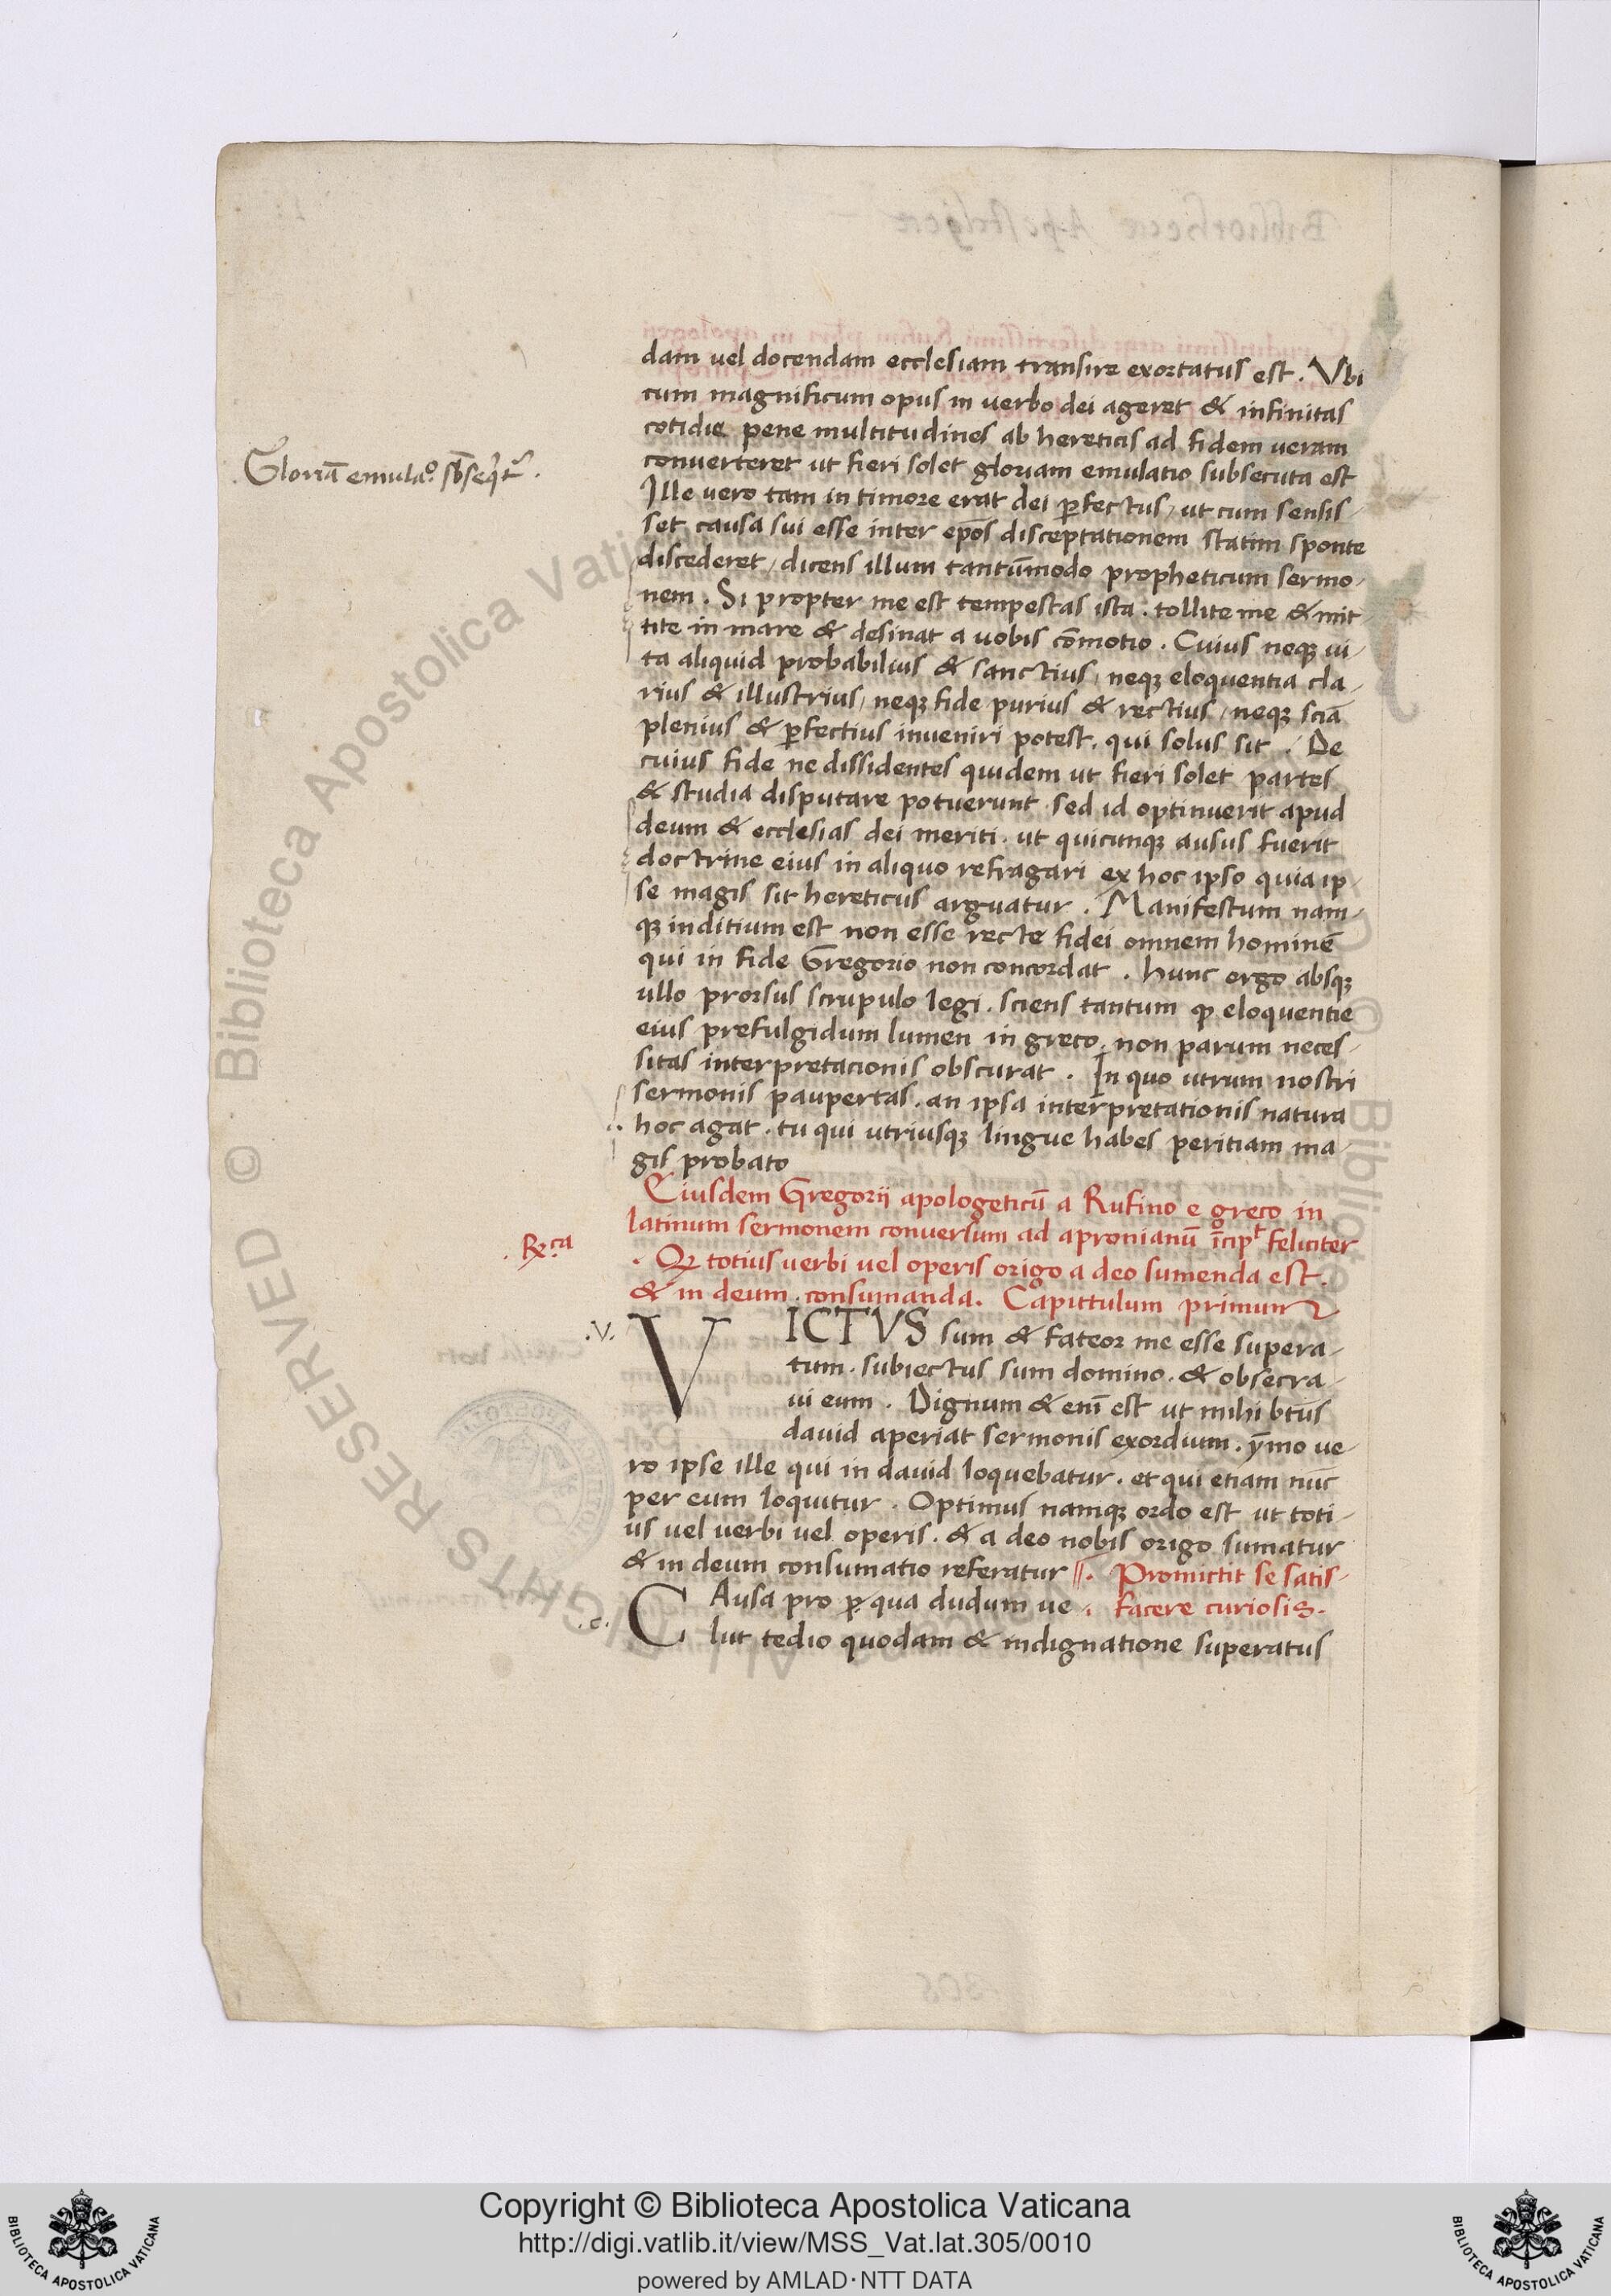 dam uel docendam ecclesiam transire exortatus est. Vbi
cum magnificum opus in uerbo dei ageret & infinitas
cotidie pene multitudines ab hereticis ad fidem ueram
.Gloriā emulaº s̄bseqͥt᷑.
conuerteret ut fieri solet gloriam emulatio subsecuta est
Ille uero tam in timore erat dei ꝑfectus, ut cum sensis-
set causa sui esse inter ep̄os disceptationem statim sponte
discederet, dicens illum tantūmodo propheticum sermo-
nem. Si propter me est tempestas ista. tollite me & mit
tite in mare & desinat a uobis cōmotio. Cuius neqꝫ ui-
ta aliquid probabilius & sanctius, neqꝫ eloquentia cla-
rius & illustrius, neqꝫ fide purius & rectius, neqꝫ sciā
plenius & ꝑfectius inueniri potest. qui solus sit. De
cuius fide ne dissidentes quidem ut fieri solet partes
& studia disputare potuerunt. sed id optinuerit apud
deum & ecclesias dei meriti. ut quicunqꝫ ausus fuerit
doctrine eius in aliquo refragari ex hoc ipso quia ip-
se magis sit hereticus arguatur. Manifestum nam-
qꝫ inditium est non esse recte fidei omnem hominē
qui in fide Gregorio non concordat. hunc ergo absqꝫ
ullo prorsus scrupulo legi. sciens tantum ꝙ eloquentie
eius prefulgidum lumen in greco. non parum neces-
sitas interpretacionis obscurat. In quo utrum nostri
sermonis paupertas. an ipsa interpretationis natura
hoc agat. tu qui utriusqꝫ lingue habes peritiam ma-
gis probato
Eiusdem Gregorii apologeticū a Rufino e greco in
latinum sermonem conuersum ad apronianū īcipᷓt feliciter
.R.ca
. Qꝫ totius uerbi uel operis origo a deo sumenda est.
& in deum consumanda. Capittulum primum
.V.
VICTVS sum & fateor me esse supera-
tum. subiectus sum domino. & obsecra-
ui eum. Dignum & enī est ut mihi bt̄us
dauid aperiat sermonis exordium. ȳmo ue-
ro ipse ille qui in dauid loquebatur. et qui etiam nūc
per eum loquitur. Optimus namqꝫ ordo est ut toti-
us uel uerbi uel operis. & a deo nobis origo sumatur
& in deum consumatio referatur. Promictit se satis-
.c.
CAusa pro ꝑ qua dudum ue- facere curiosis.
lut tedio quodam & indignatione superatus
© Biblioteca Apostolica Vaticana
ALL RIGHTS RESERVED
Copyright © Biblioteca Apostolica Vaticana
http://digi.vatlib.it/view/MSS_Vat.lat.305/0010
powered by AMLAD·NTT DATA
BIBLIOTECA APOSTOLICA VATICANA
BIBLIOTECA APOSTOLICA VATICANA